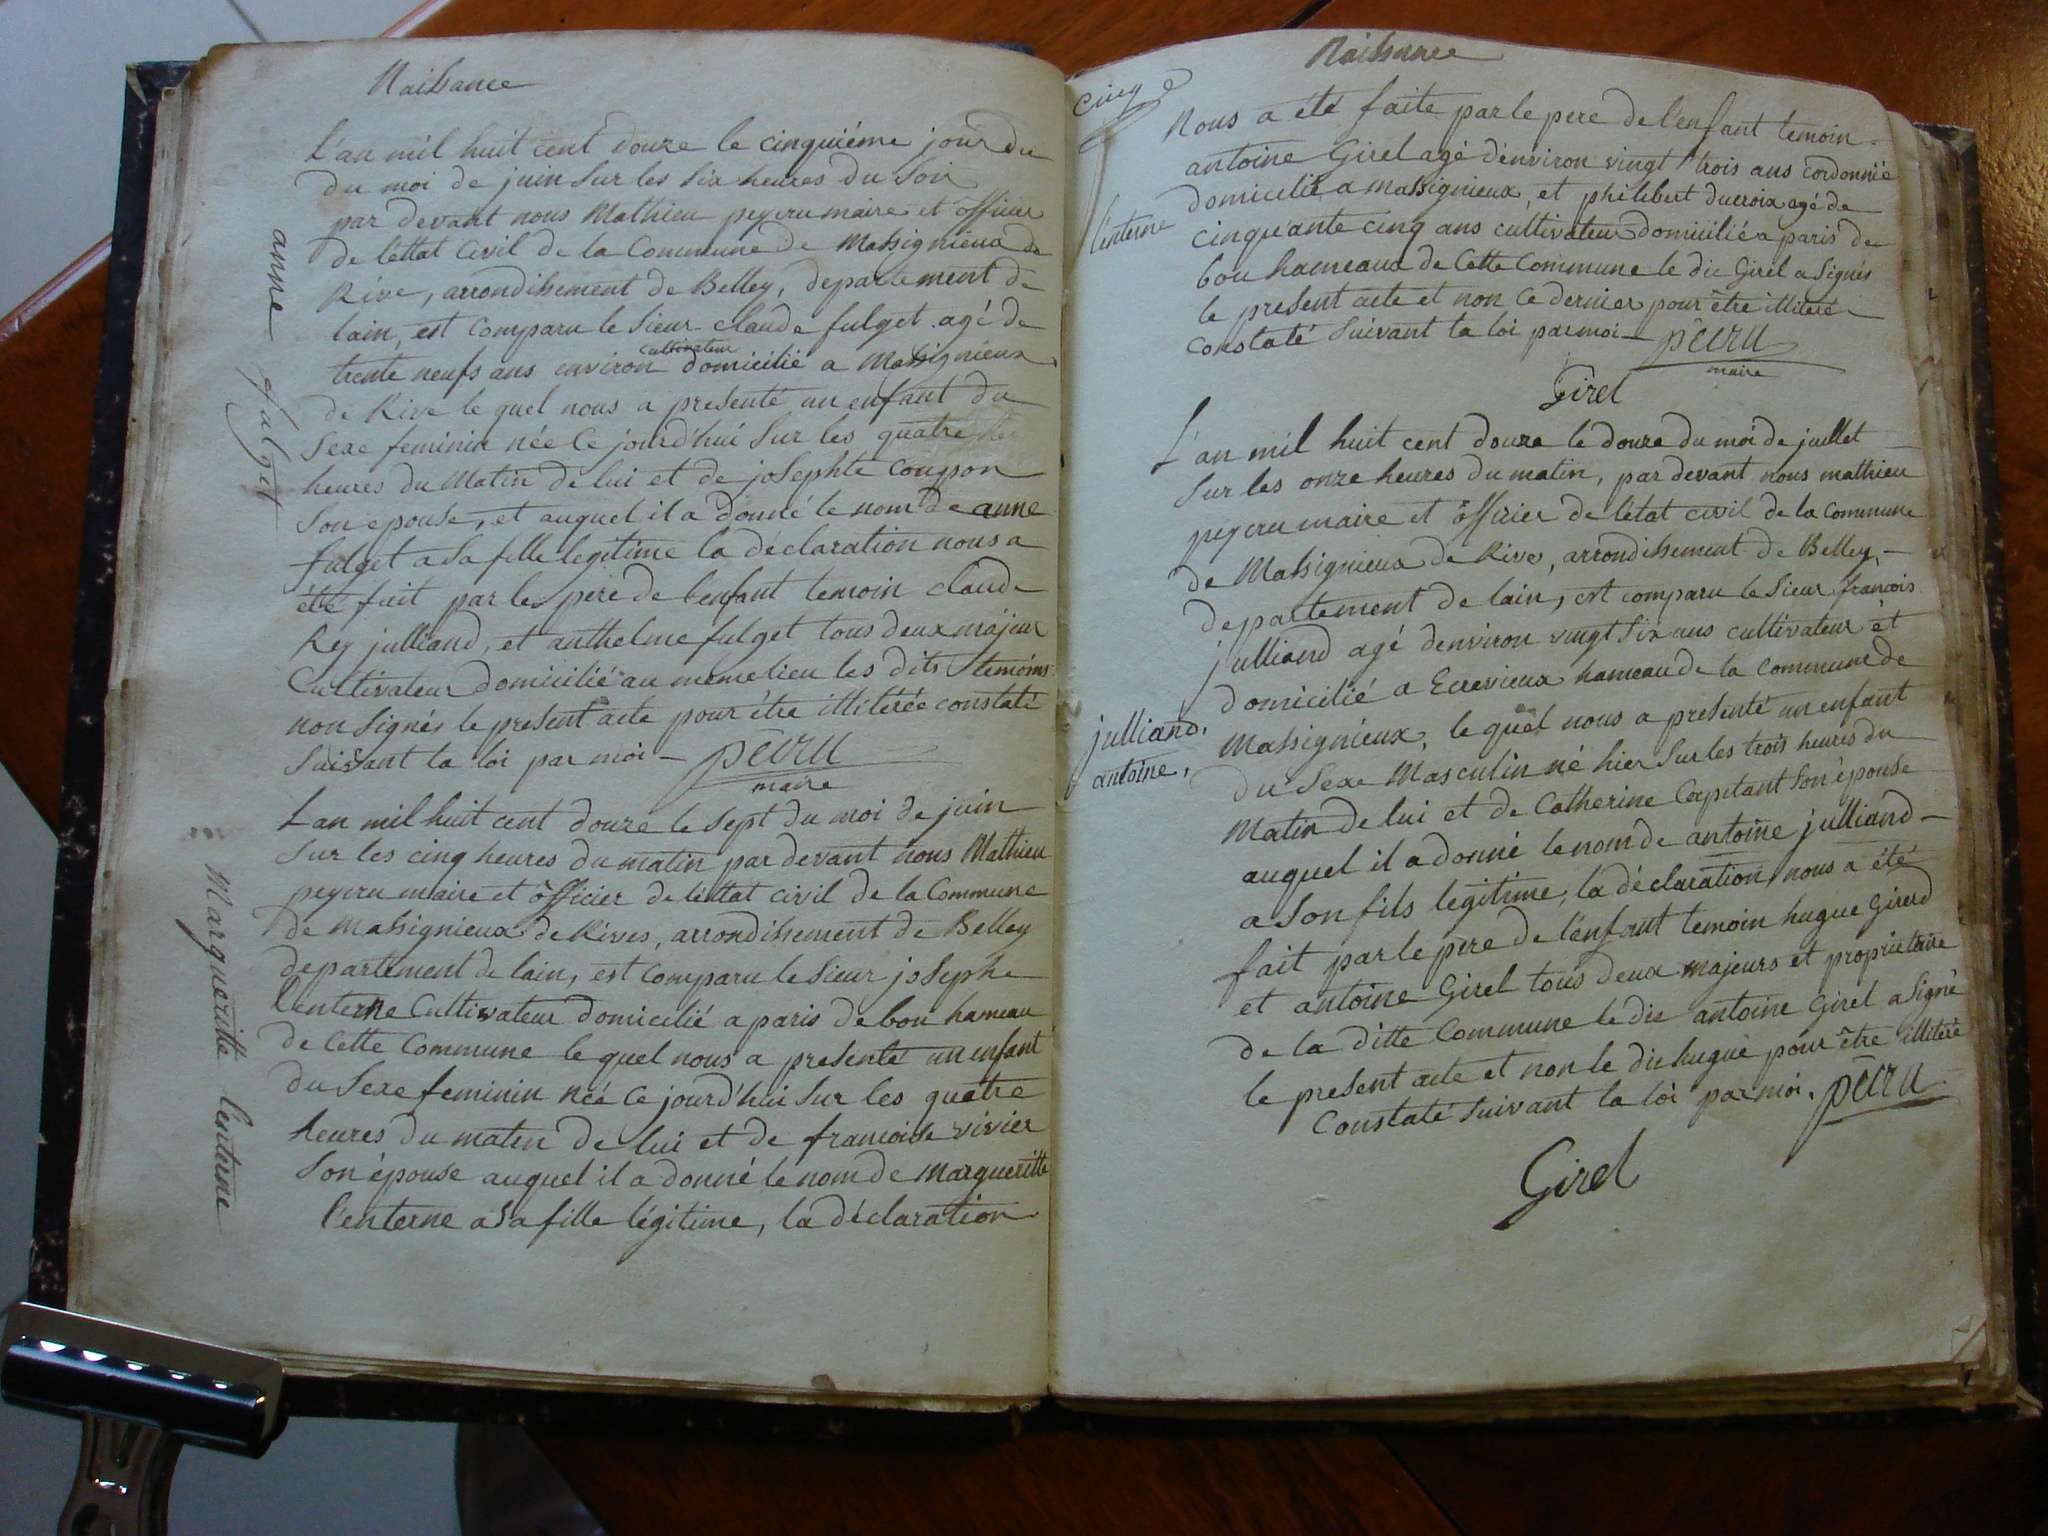 Naissance
L'an mil huit cent douze le cinquiéme jour du
du moi de juin sur les six heures du soir
par devant nous Mathieu peycru maire et officier
de l'ettat civil de la Commune de Massignieux de
Rive, arrondissement de Belley, departement de
lain, est comparu le sieur claude fulget agé de
trente neufs ans environ cultivateur domicilié a Massignieux
de Rive le quel nous a presenté un enfant du
sexe feminin née ce jourd'hui sur les quatre
heures du Matin de lui et de josephte
son epouse, et auquel il a donné le nom de anne
fulget a sa fille legitime la déclaration nous a
été fait par le pere de l'enfant temoin claude
Rey julliand, et anthelme fulget tous deux majeur
Cultivateur domicilié au meme lieu les dits temoins
non signés le present acte pour être illiterée constaté
suivant la loi par moi peuru
maire
anne fulget
L'an mil huit cent douze le sept du moi de juin
sur les cinq heures du matin par devant nous Mathieu
peycru maire et officier de l'ettat civil de la Commune
de Massignieux de Rives, arrondissement de Belley
departement de lain, est comparu le sieur josephe
l'enterne Cultivateur domicilié a paris de bou hameau
de Cette Commune le quel nous a presenté un enfant
du sexe feminin née ce jourd'hui sur les quatre
heures du matin de lui et de francoise vivier
son épouse auquel il a donné le nom de Margueritte
l'enterne a sa fille légitime, la déclaration
Margueritte l'enterne
Naissance
cinq
Nous a été faite par le pere de l'enfant temoin
antoine Girel agé d'environ vingt trois ans cordonnié
domicilié a massignieux, et philibert ducroix agé de
cinquante cinq ans cultivateur domicilié a paris de
bou hameaux de Cette Commune le dic Girel a signés
le present acte et non ce dernier pour être illiteré
constaté suivant la loi par moi peuru
maire
Girel
l'enterne
L'an mil huit cent douze le douze du moi de juillet
sur les onze heures du matin, par devant nous mathieu
peycru maire et officier de l'état civil de la Commune
de Massignieux de Rive, arrondissement de Belley,
departement de lain, est comparu le sieur françois
julliand agé d'environ vingt six ans cultivateur et
domicilié a Ecrevieux hameau de la commune de
Massignieux, le quel nous a presenté un enfant
du sexe Masculin né hier sur les trois heures du
Matin de lui et de Catherine Capitant son épouse
auquel il a donné le nom de antoine julliand
a son fils legitime, la déclaration nous a été
fait par le pere de l'enfant temoin hugue Girerd
et antoine Girel tous deux majeurs et proprietaire
de la ditte Commune le dic antoine Girel a signé
le present acte et non le dic hugue pour être illiteré
Constaté suivant la loi par moi. peuru
Girel
julliand,
antoine,